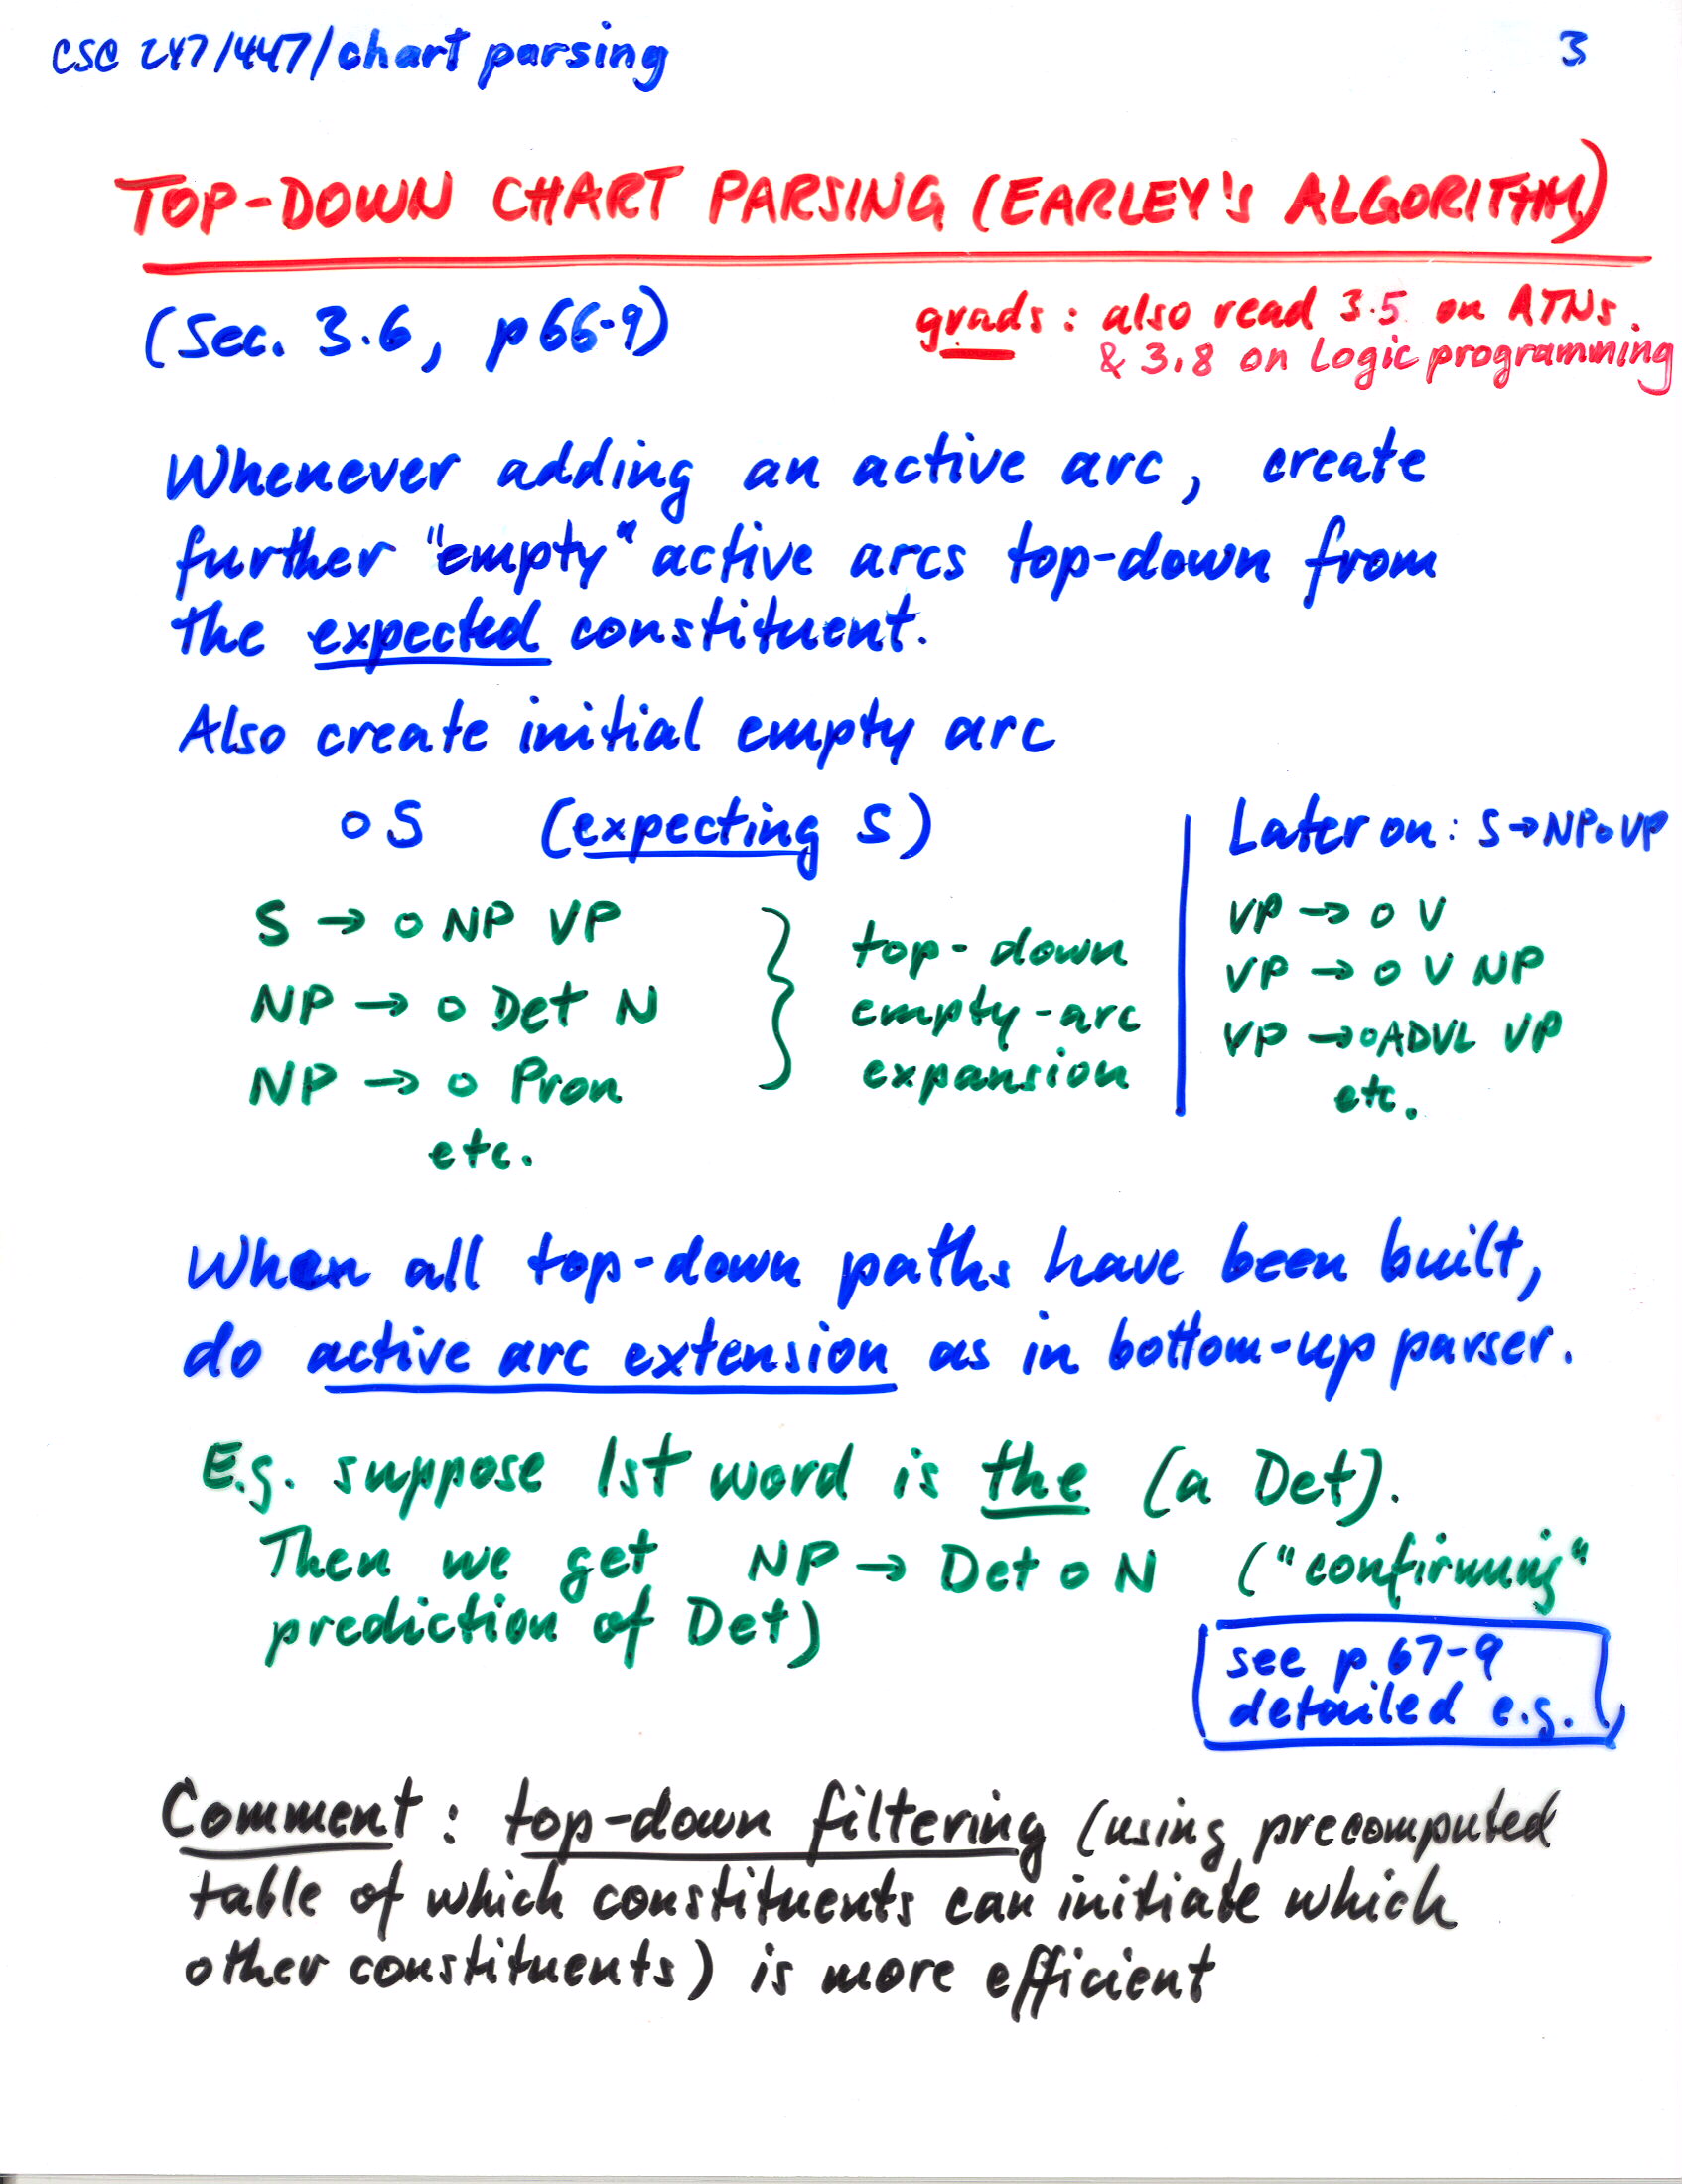 CSC 247/447/chart parsing 3
TOP-DOWN CHART PARSING (EARLEY'S ALGORITHM)
(Sec. 3.6, p66-9)
grads: also read 3.5 on ATNs.
& 3.8 on Logic programming
Whenever adding an active arc, create
further "empty" active arcs top-down from
the expected constituent.
Also create initial empty arc
o S (expecting S)
S → o NP VP
NP → o Det N
NP → o Pron
etc.
top-down
empty-arc
expansion
Later on: S→NP o VP
VP → o V
VP → o V NP
VP → o ADVL VP
etc.
When all top-down paths have been built,
do active arc extension as in bottom-up parser.
E.g. suppose 1st word is the (a Det).
Then we get NP → Det o N ("confirming"
prediction of Det)
see p 67-9
detailed e.g.
Comment: top-down filtering (using precomputed
table of which constituents can initiate which
other constituents) is more efficient